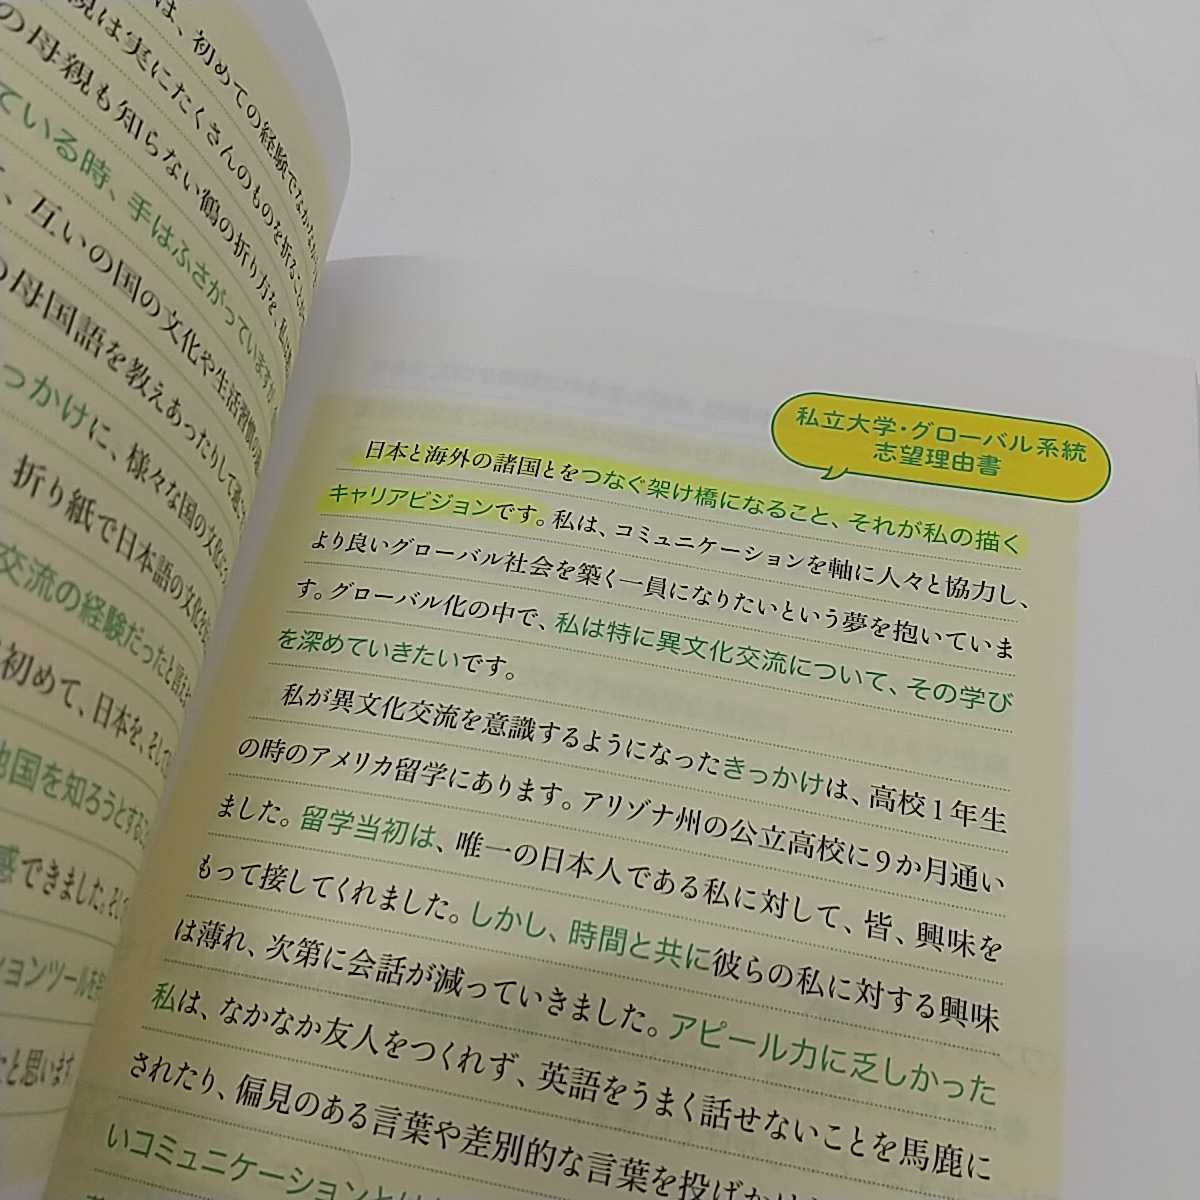 は、初めての経験でなかなか
親は実にたくさんのものを折ること
の母親も知らない鶴の折り方を、私は
ている時、手はふさがっていますが
、互いの国の文化や生活習慣の
の母国語を教えあったりして
っかけに、様々な国の文化
折り紙で日本語の文化
交流の経験だったと言え
初めて、日本を、そして
他国を知ろうとする
感できました。そして
ションツールを
と思います
私立大学・グローバル系統
志望理由書
日本と海外の諸国とをつなぐ架け橋になること、それが私の描く
キャリアビジョンです。私は、コミュニケーションを軸に人々と協力し、
より良いグローバル社会を築く一員になりたいという夢を抱いていま
す。グローバル化の中で、私は特に異文化交流について、その学び
を深めていきたいです。
私が異文化交流を意識するようになったきっかけは、高校1年生
の時のアメリカ留学にあります。アリゾナ州の公立高校に9か月通い
ました。留学当初は、唯一の日本人である私に対して、皆、興味を
もって接してくれました。しかし、時間と共に彼らの私に対する興味
は薄れ、次第に会話が減っていきました。アピール力に乏しかった
私は、なかなか友人をつくれず、英語をうまく話せないことを馬鹿に
されたり、偏見のある言葉や差別的な言葉を投げかけ
いコミュニケーションとは